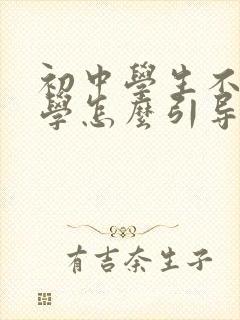 初中學生不
學怎麼引导
有吉奈生子